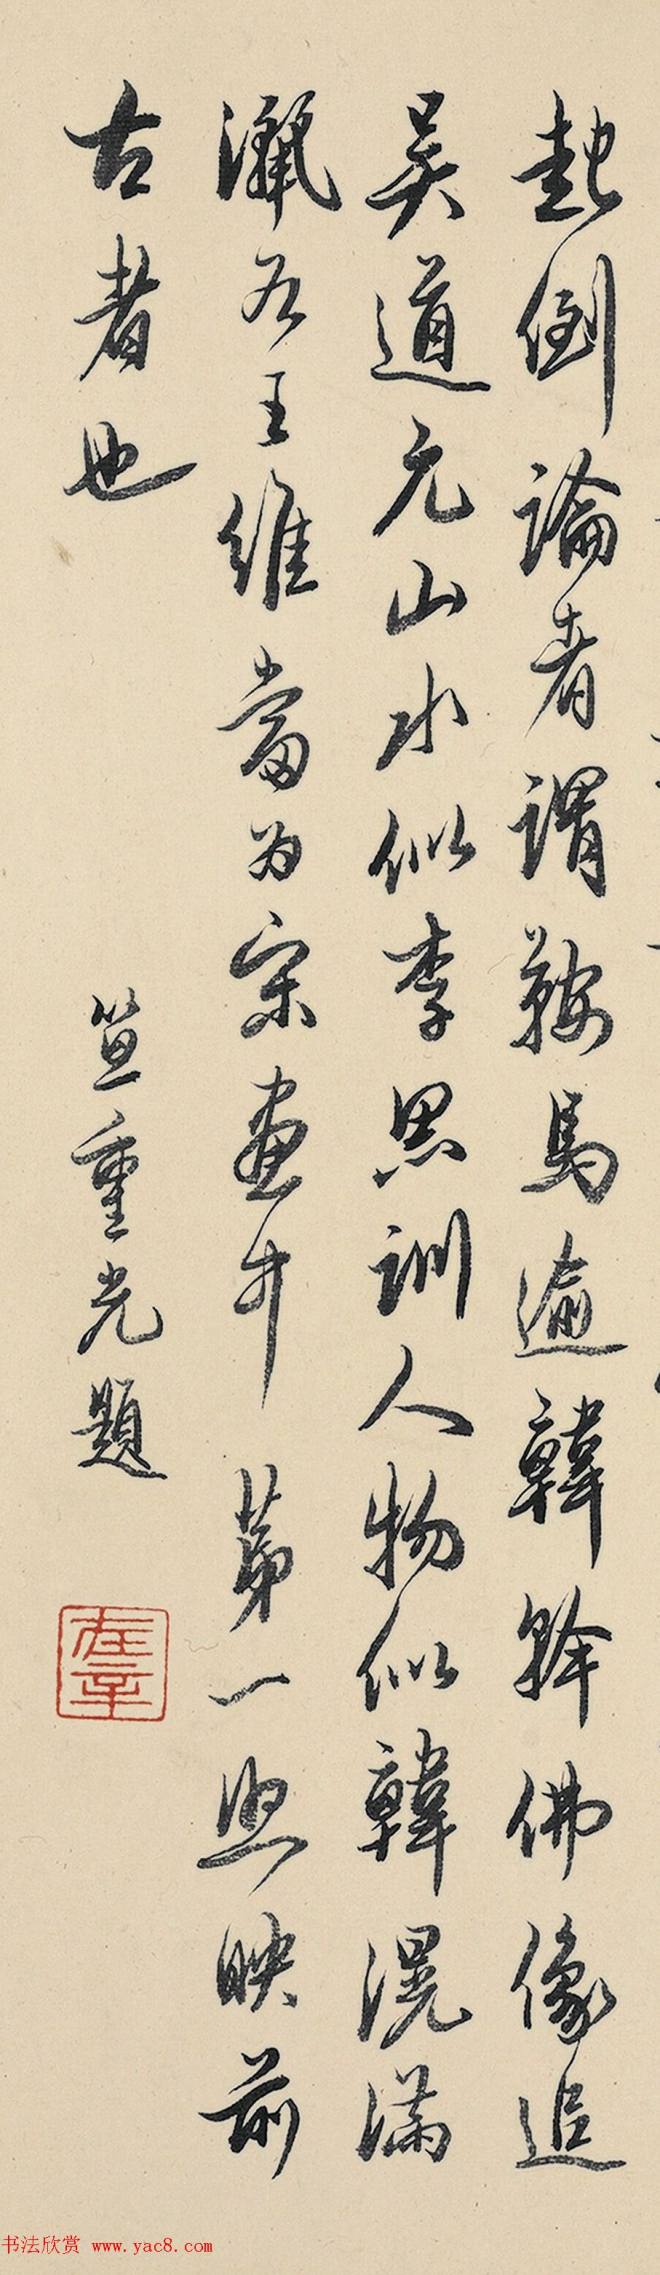 起倒論者謂鞍馬逾韓幹佛像追
吳道元山水似李思訓人物似韓滉满
灑如王維當为宋畫中第一照映前
古者也
笪重光題
书法欣赏 www.yac8.com